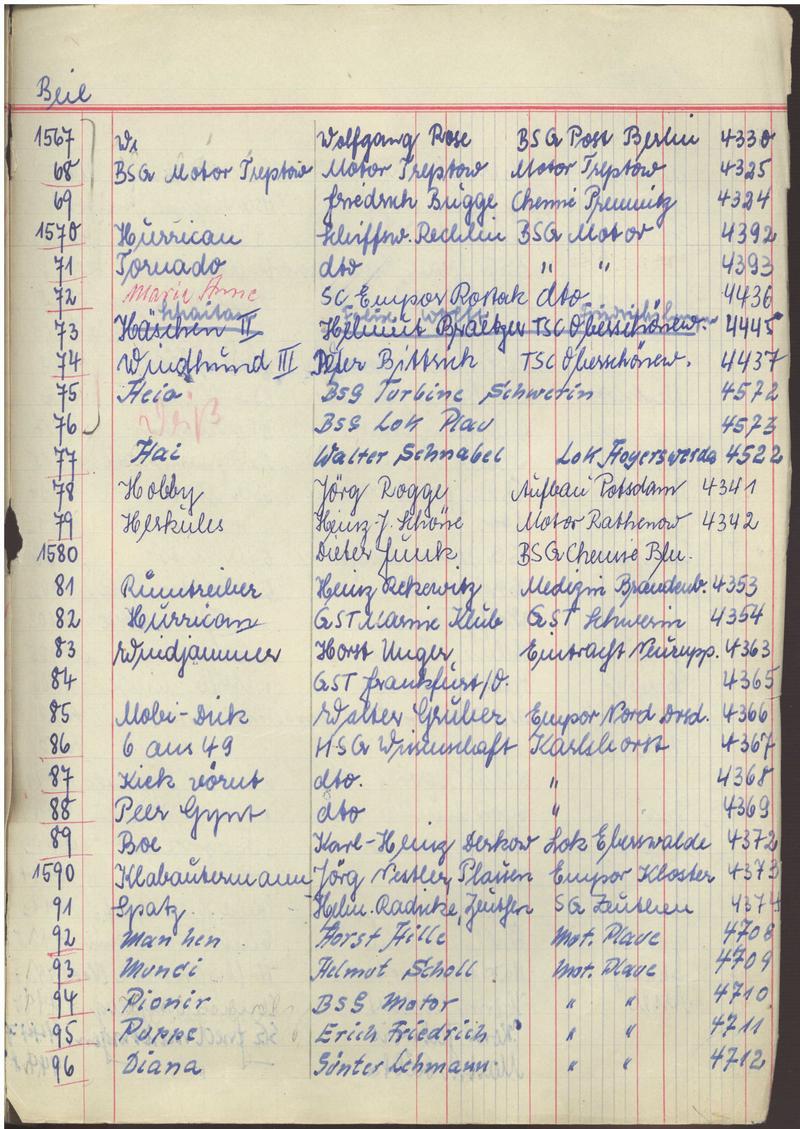 Beil
1567 Wolfgang Rose BSG Post Berlin 4330
68 BSG Motor Treptow Motor Treptow Motor Treptow 4325
69 Friedrich Bügge Chemie Premnitz 4324
1570 Hurrican Schiffsw. Rechlin BSG Motor 4392
71 Tornado dto " " 4393
72 Marie Anne SC Empor Rostok dto. 4436
73 Häschen II Helmut TSC Oberschönew. 4445
74 Windhund III Peter Bittrich TSC Oberschönew. 4437
75 Heia BSG Turbine Schwerin 4572
Weiß
76 BSG Lok Plau 4573
77 Hai Walter Schnabel Lok Hoyerswerda 4522
78 Hobby Jörg Rogge Aufbau Potsdam 4341
79 Herkules Heinz-J. Schöne Motor Rathenow 4342
1580 Dieter Junk BSG Chemie Bln.
81 Rumtreiber Heinz Rekewitz Medizin Brandenb. 4353
82 Hurrican GST Marine Klub GST Schwerin 4354
83 Windjammer Horst Unger Eintracht Neurupp. 4363
84 GST Frankfurt/O. 4365
85 Mobi-Dick Walter Gruber Empor Nord Drsd. 4366
86 6 aus 49 HSG Wissenschaft Karlshorst 4367
87 Kiek vörut dto. " 4368
88 Peer Gynt dto " 4369
89 Boe Karl-Heinz Derkow Lok Eberswalde 4372
1590 Klabautermann Jörg Nestler, Plauen Empor Kloster 4373
91 Spatz Helm. Radicke, Zeuthen SG Zeuthen 4374
92 Horst Hille Mot. Plaue 4708
93 Mundi Helmut Scholl Mot. Plaue 4709
94 Pionir BSG Motor " " 4710
95 Puppe Erich Friedrich " " 4711
96 Diana Günter Lehmann " " 4712